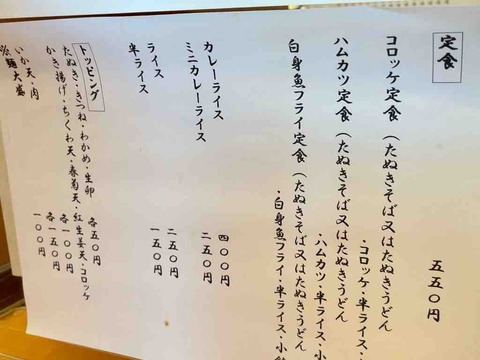 定食
コロッケ定食(たぬきそば又はたぬきうどん
・コロッケ・半ライス・
五五〇円
ハムカツ定食(たぬきそば又はたぬきうどん
・ハムカツ・半ライス・小
白身魚フライ定食(たぬきそば又はたぬきうどん
・白身魚フライ・半ライス・小
カレーライス 四〇〇円
ミニカレーライス 二五〇円
ライス 二五〇円
半ライス 一五〇円
トッピング
たぬき・きつね・わかめ・生卵 各五〇円
かき揚げ・ちくわ天・春菊天・紅生姜天・コロッケ 各一〇〇円
いか天・肉 各一五〇円
麺大盛 一〇〇円